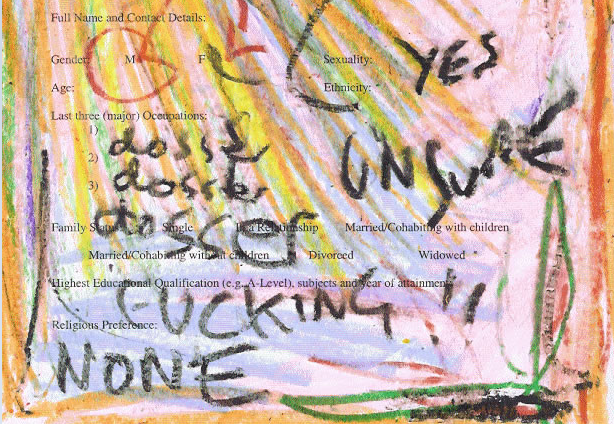 Full Name and Contact Details:
Gender: M F Sexuality: YES
Age: Ethnicity:
Last three (major) Occupations:
1) dosser
2) dosser UNSURE
3) dosser
Family Status: Single In a Relationship Married/Cohabiting with children
Married/Cohabiting without children Divorced Widowed
Highest Educational Qualification (e.g. A-Level), subjects and year of attainment
FUCKING
Religious Preference:
NONE